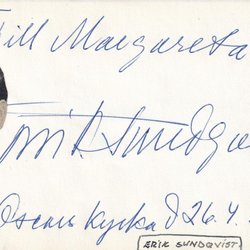 Till Margareta
Erik Sundqv
Oscars kyrka d 26.4.
ERIK SUNDQVIST